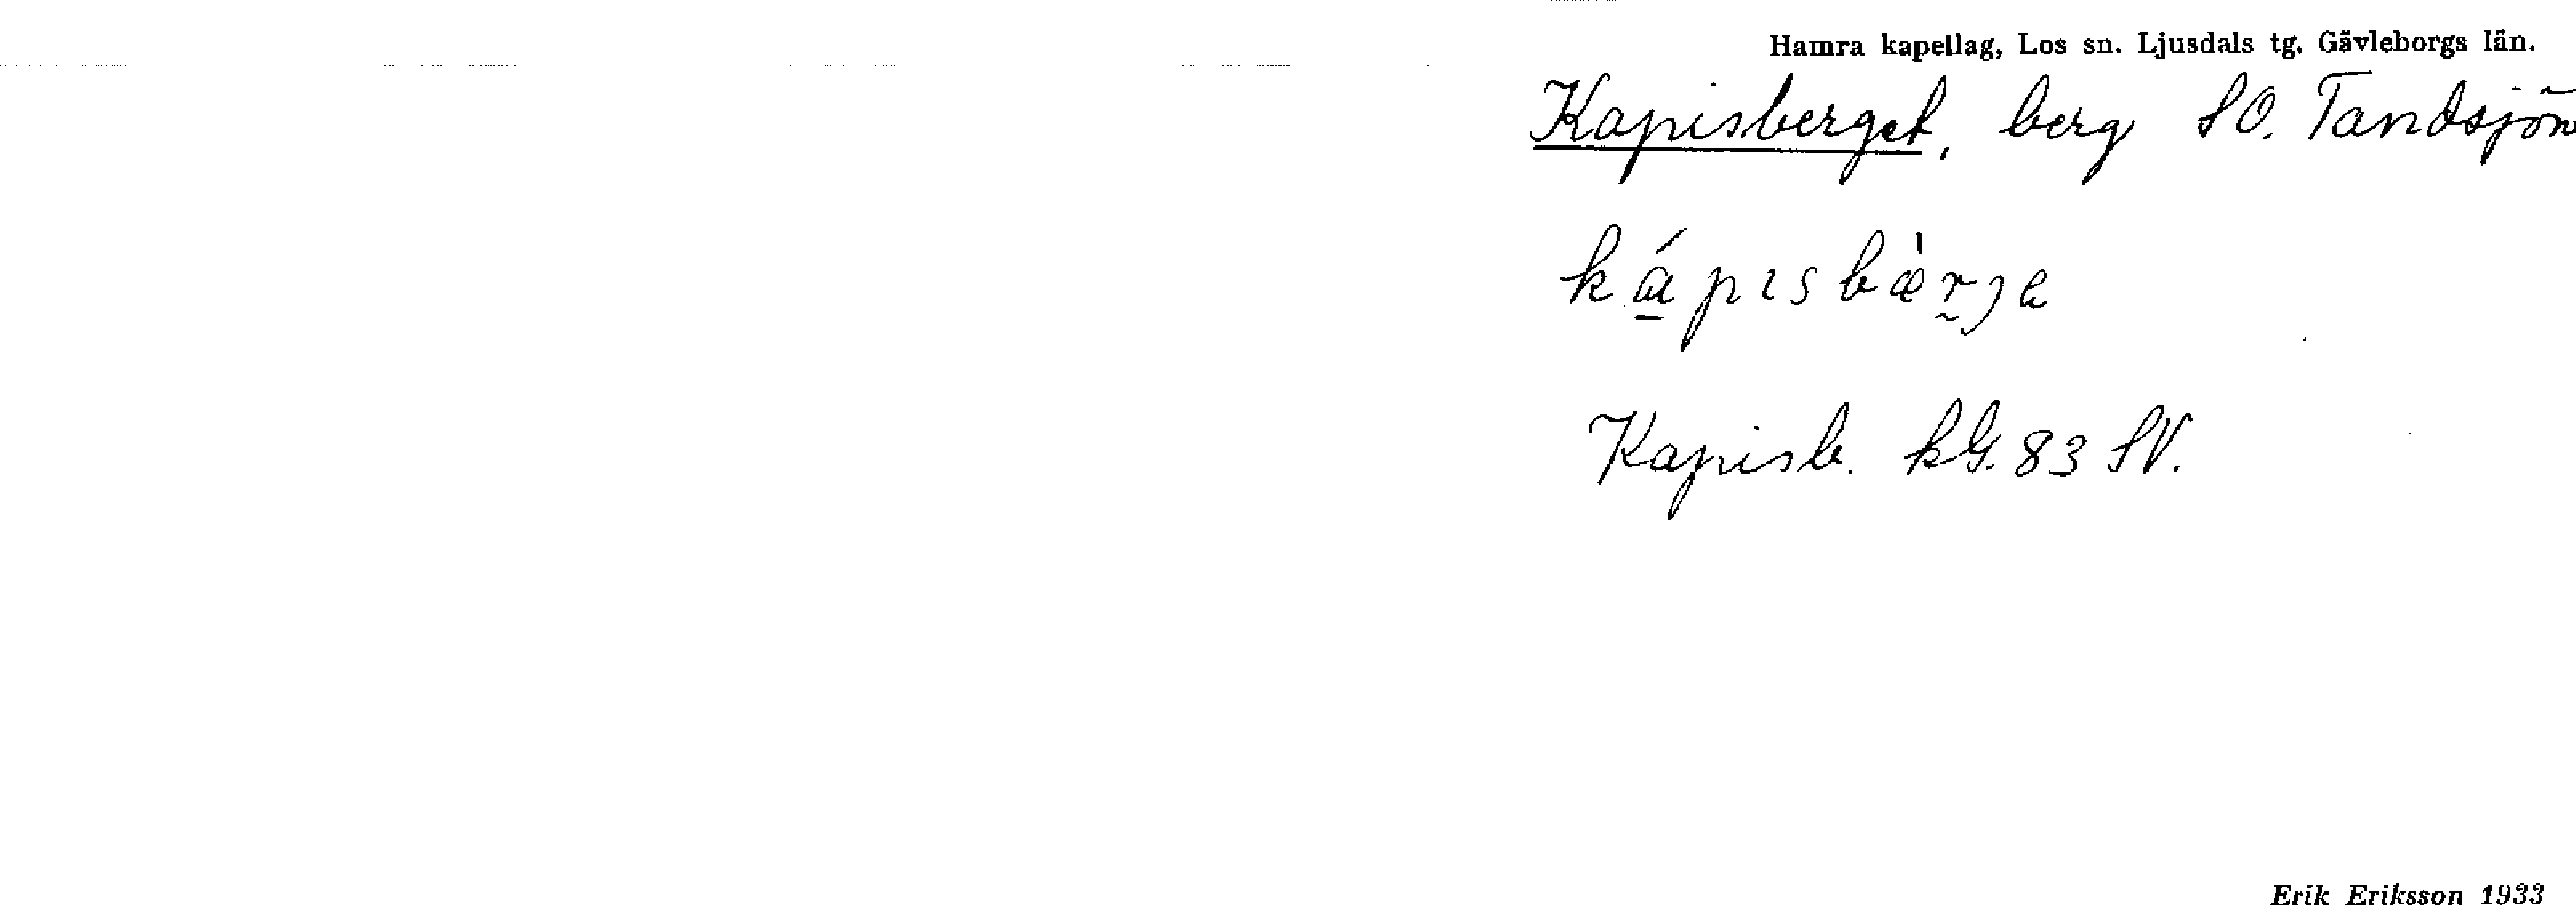 Hamra kapellag, Los sn. Ljusdals tg. Gävleborgs län.
Kapisberget, berg SO. Tandsjön
kápısbæ̀rjɐ
Kapisb. kG. 83 SV.
Erik Eriksson 1933